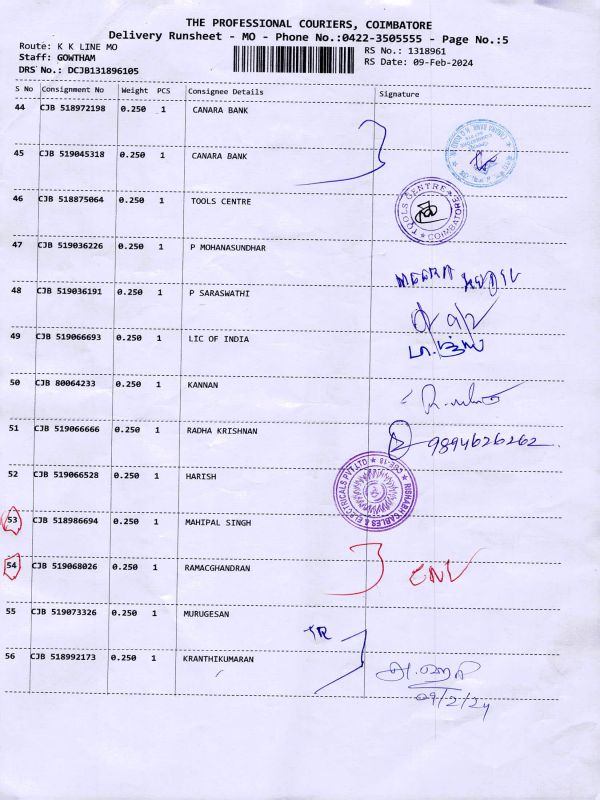 THE PROFESSIONAL COURIERS, COIMBATORE
Delivery Runsheet - MO - Phone No.:0422-3505555 - Page No.:5
Route: K K LINE MO
RS No.: 1318961
Staff: GOWTHAM
RS Date: 09-Feb-2024
DRS No.: DCJB131896105
S No Consignment No Weight PCS Consignee Details Signature
44 CJB 518972198 0.250 1 CANARA BANK
45 CJB 519045318 0.250 1 CANARA BANK
46 CJB 518875064 0.250 1 TOOLS CENTRE
TOOLS CENTRE COIMBATORE
47 CJB 519036226 0.250 1 P MOHANASUNDHAR
MEERA
48 CJB 519036191 0.250 1 P SARASWATHI
49 CJB 519066693 0.250 1 LIC OF INDIA
50 CJB 80064233 0.250 1 KANNAN
51 CJB 519066666 0.250 1 RADHA KRISHNAN 9894626262
52 CJB 519066528 0.250 1 HARISH
RISHAB CABLES & ELECTRICALS PVT.LTD CBE-18
53 CJB 518986694 0.250 1 MAHIPAL SINGH
54 CJB 519068026 0.250 1 RAMACGHANDRAN
55 CJB 519073326 0.250 1 MURUGESAN
56 CJB 518992173 0.250 1 KRANTHIKUMARAN
09/2/24